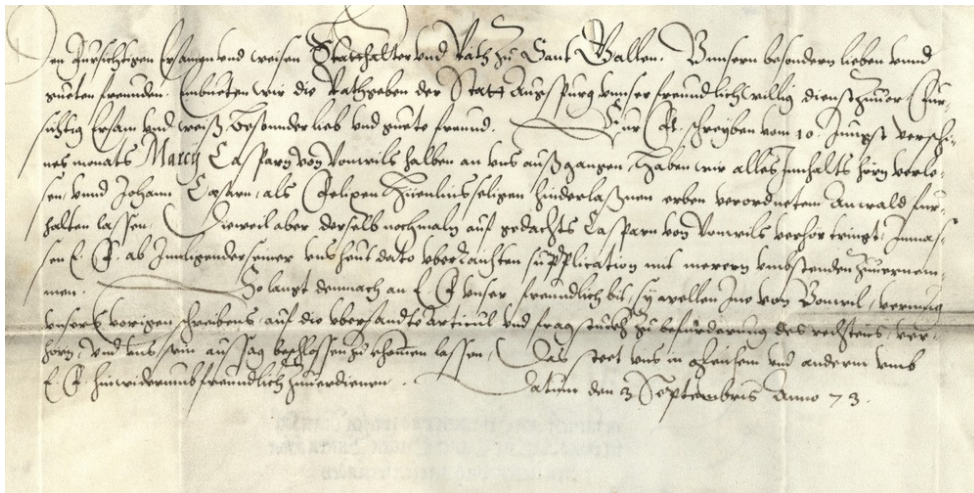 Den fursichtigen Ersamen und weisen Statthalter und Rath zu Sant Gallen. Unnsern besondern lieben unnd
gueten freunden. Embieten wir die Rathgeben der Statt Augspurg unnser freundlich willig dienst zuvor. Fur-
sichtig Ersam und weiß, besonder lieb und guete freund. Eur F. schreyben vom 10. Jungst verschi-
nes monats Marcij Casparn von Vonwils halben an uns außgangen, Haben wir alles innhalts hörn verle-
sen, unnd Johann als Felixen seligen hinderlaßnen erben verordnetem Anwald fur-
halten lassen. Dieweil aber derselb nochmaln auf gedachts Casparn von Vonwils verhör tringt, Inmas-
sen E. F. ab Innligender seiner uns heut dato uberraichten supplication mit merern umbstenden zuverneem-
men. So langt demnach an E. F. unser freundlich bit, sy wellen Ine von Vonwil, vermug
unsers vorigen schreibens, auf die ubersandte Articul und fragstuckh zu befurderung des rechtens, ver-
hörn, und uns sein aussag beschlossen zukhommen lassen, Das steet uns in gleichem und anderm umb
E. F. hinwiderumb freundlich zuverdienen. Datum den 3 Septembris Anno 73.